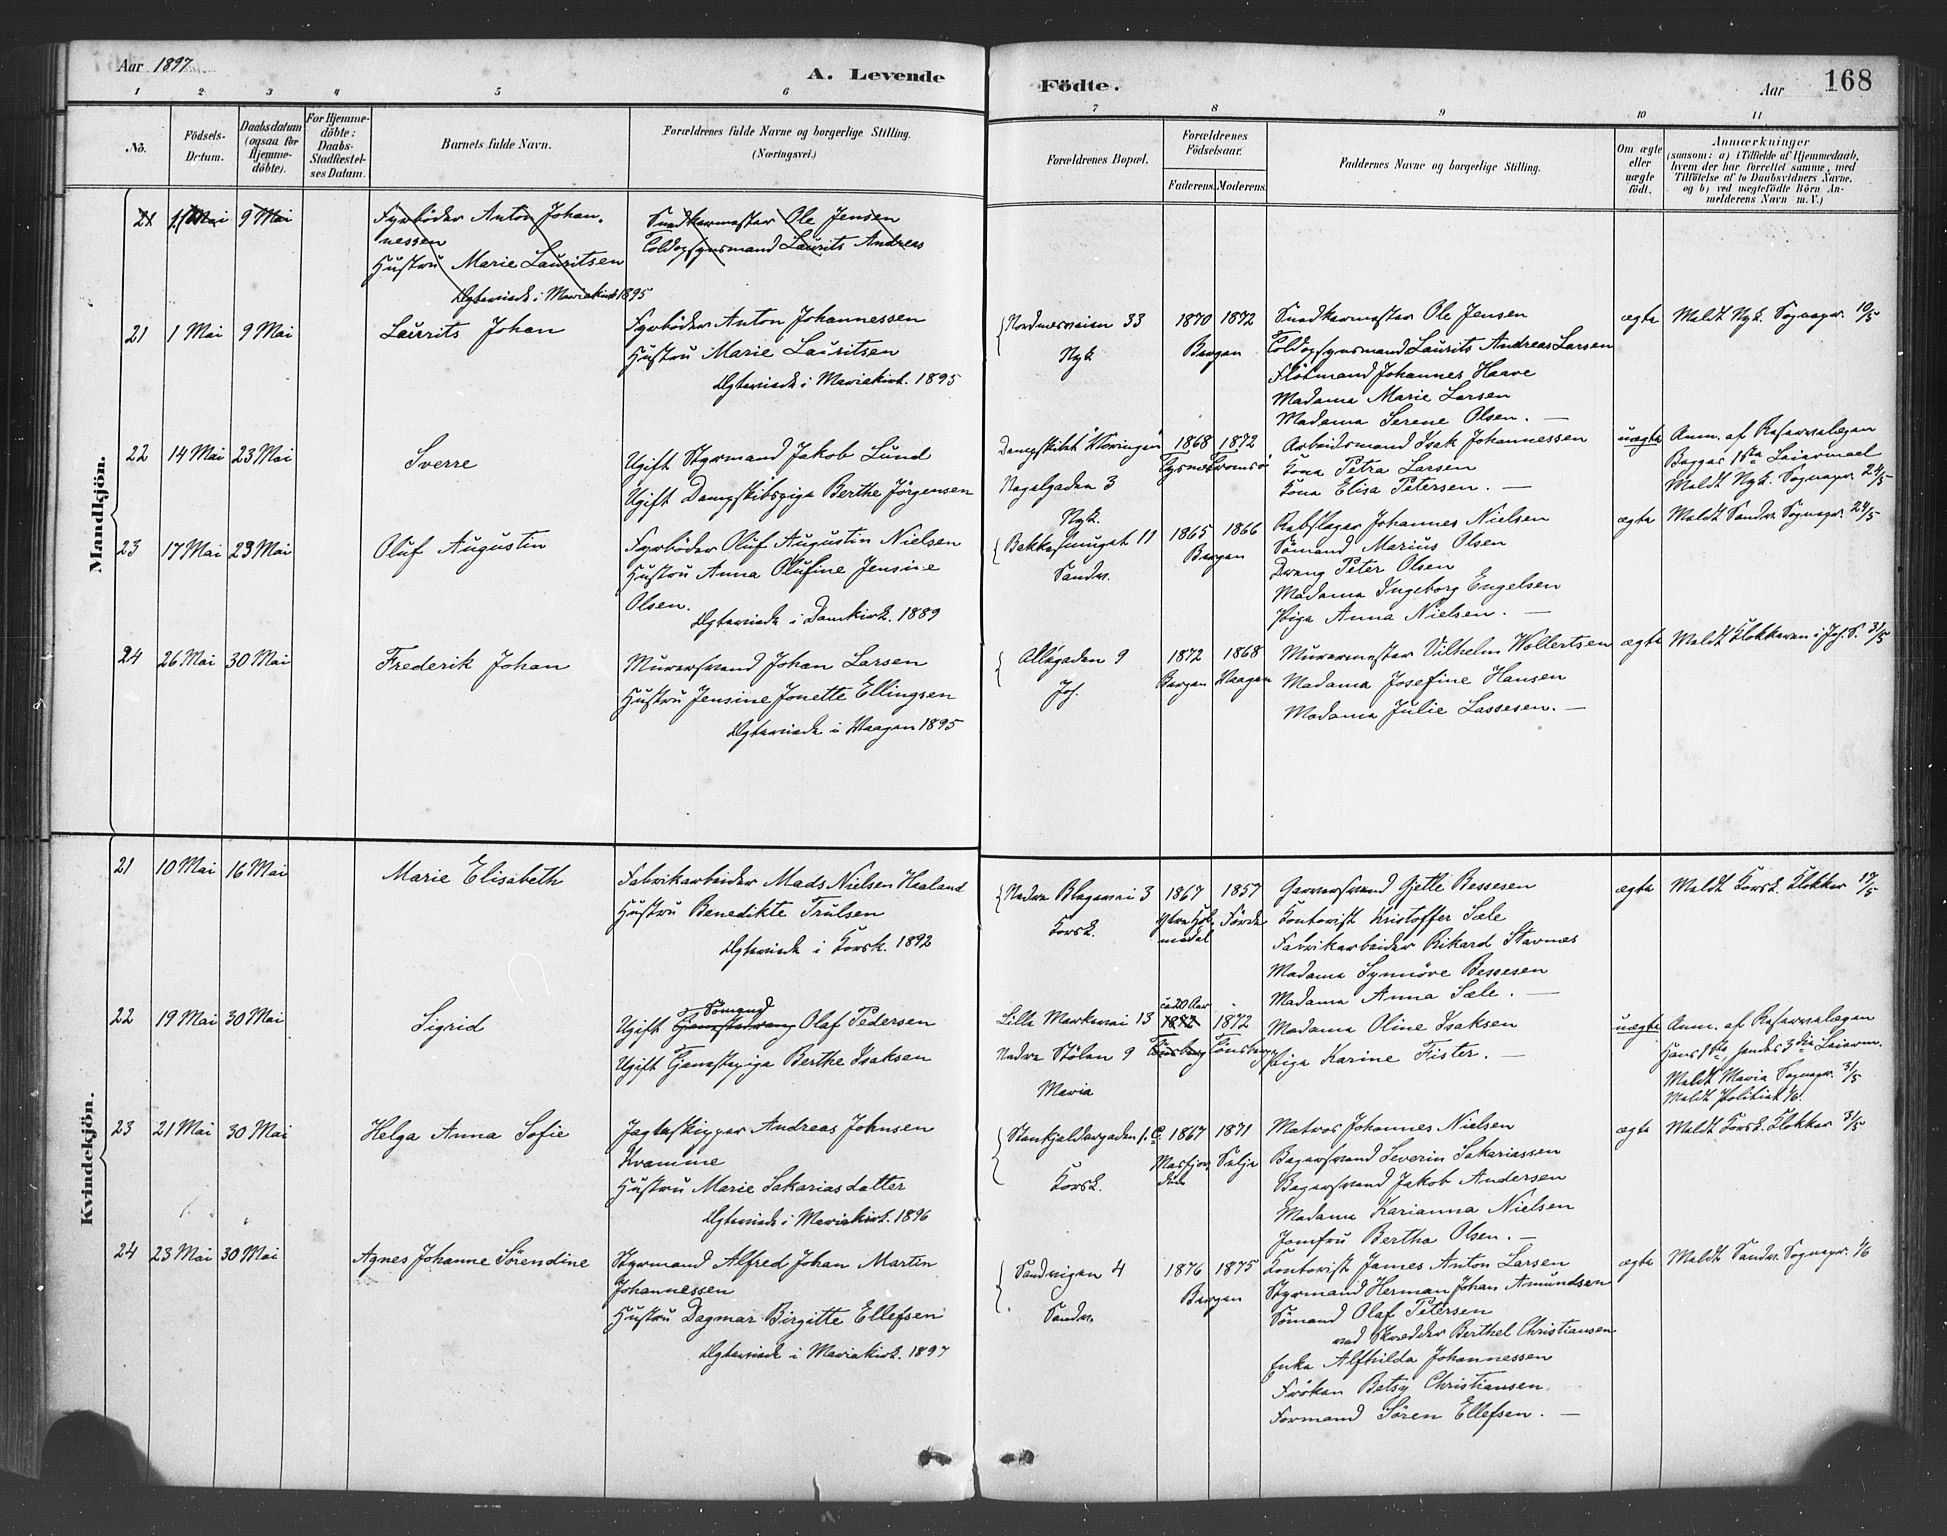 Aar 1897.
A. Levende
Födte.
Aar
168
1 2 3 4 5 6 7 8 9 10 11
No.
Födsels-
Datum.
Daabsdatum
(ogsaa for
Hjemme-
döbte).
For Hjemme-
döbte:
Daabs-
Stadfæstel-
ses Datum.
Barnets fulde Navn.
Forældrenes fulde Navne og borgerlige Stilling.
(Næringsvei.)
Forældrenes Bopæl.
Forældrenes
Födselsaar.
Faderens.
Moderens.
Faddernes Navne og borgerlige Stilling.
Om ægte
eller
uægte
født.
Anmærkninger
(saasom: a) i Tilfælde af Hjemmedaab,
hvem der har forrettet samme, med
Tilföielse af to Daabsvidners Navne,
og b) ved uægtefödte Börn An-
melderens Navn m. V.)
Mandkjön.
21 1 Mai 9 Mai
Fyrböder Anton Johan-
nessen
Hustru Marie Lauritsen
Ægteviede i Mariakirk. 1895
Snedkermester Ole Jensen
Toldopsynsmand Laurits Andreas
21 1 Mai 9 Mai
Laurits Johan
Fyrböder Anton Johannessen
Hustru Marie Lauritsen
Ægteviede i Mariakirk. 1895
Nordnesveien 33
Nyk.
1870 1872
Bergen
Snedkermester Ole Jensen
Toldopsynsmand Laurits Andreas Larsen
Flötmand Johannes Haave
Madame Marie Larsen
Madame Serene Olsen. —
ægte
Meldt Nyk. Sognepr. 10/5
22 14 Mai 23 Mai
Sverre
Ugift Styrmand Jakob Lund
Ugift Dampskibspige Berthe Jörgensen
Dampskibet
Nagelgaden 3
Nyk.
1868 1872
Tysnes Tromsö
Arbeidsmand Isak Johannessen
Kone Petra Larsen
Kone Elisa Petersen. —
uægte
Anm. af Reservelægen
Begges 1ste Leiermaal
Meldt Nyk. Sognepr. 24/5
23 17 Mai 23 Mai
Oluf Augustin
Fyrböder Oluf Augustin Nielsen
Hustru Anna Olufine Jensine
Olsen.
Ægteviede i Domkirk. 1889
Bekkesmuget 11
Sandv.
1865 1866
Bergen
Rebslager Johannes Nielsen
Sömand Marius Olsen
Dreng Peter Olsen
Madame Ingeborg Engelsen
Pige Anna Nielsen. —
ægte
Meldt Sandv. Sognepr. 24/5
24 26 Mai 30 Mai
Frederik Johan
Murersvend Johan Larsen
Hustru Jensine Jonette Ellingsen
Ægteviede i Vaagen 1895
Allégaden 9
Joh.
1872 1868
Bergen Vaagen
Murermester Vilhelm Wollertsen
Madame Josefine Hansen
Madame Julie Lassesen. —
ægte
Meldt Klokkeren i Joh. S. 31/5
Kvindekjön.
21 10 Mai 16 Mai
Marie Elisabeth
Fabrikarbeider Mads Nielsen Haaland
Hustru Benedikte Trulsen
Ægteviede i Korsk. 1892
Nedre Blegevei 3
Korsk.
1867 1857
Ytre Hol-
medal
Förde
Garversvend Gjetle Bessesen
Kontorist Kristoffer Sæle
Fabrikarbeider Rikard Stavnæs
Madame Synnöve Bessesen
Madame Anna Sæle. —
ægte
Meldt Korsk. Klokker 17/5
22 19 Mai 30 Mai
Sigrid
Sömand
Ugift Tjenestedreng Olaf Pedersen
Ugift Tjenestepige Berthe Isaksen
Lille Markevei 13
Nedre Stölen 9
Maria
ca 20 Aar
1872 1872
Tönsberg Tönsberg
Madame Oline Isaksen
Pige Karine Fister. —
uægte
Anm. af Reservelægen
Hans 1ste, hendes 3die Leierm.
Meldt Maria Sognepr. 31/5
Meldt Politiet 1/6.
23 21 Mai 30 Mai
Helga Anna Sofie
Jagteskipper Andreas Johnsen
Kvamme
Hustru Marie Sakariasdatter
Ægteviede i Mariakirk. 1896
Stenkjeldergaden 1.C.
Korsk.
1867 1871
Masfjor-
den
Selje
Matros Johannes Nielsen
Bagersvend Severin Sakariassen
Bagersvend Jakob Andersen
Madame Karianna Nielsen
Jomfru Bertha Olsen. —
ægte
Meldt Korsk. Klokker 31/5
24 23 Mai 30 Mai
Agnes Johanne Sörendine
Styrmand Alfred Johan Martin
Johannessen
Hustru Dagmar Birgitte Ellefsen
Ægteviede i Mariakirk. 1897
Sandvigen 4
Sandv.
1876 1875
Bergen
Kontorist James Anton Larsen
Styrmand Herman Johan Amundsen
Sömand Olaf Petersen
ved Skrædder Berthel Christiansen
Enke Alfhilda Johannessen
Fröken Betsy Christiansen.
Formand Sören Ellefsen. —
ægte
Meldt Sandv. Sognepr. 1/6